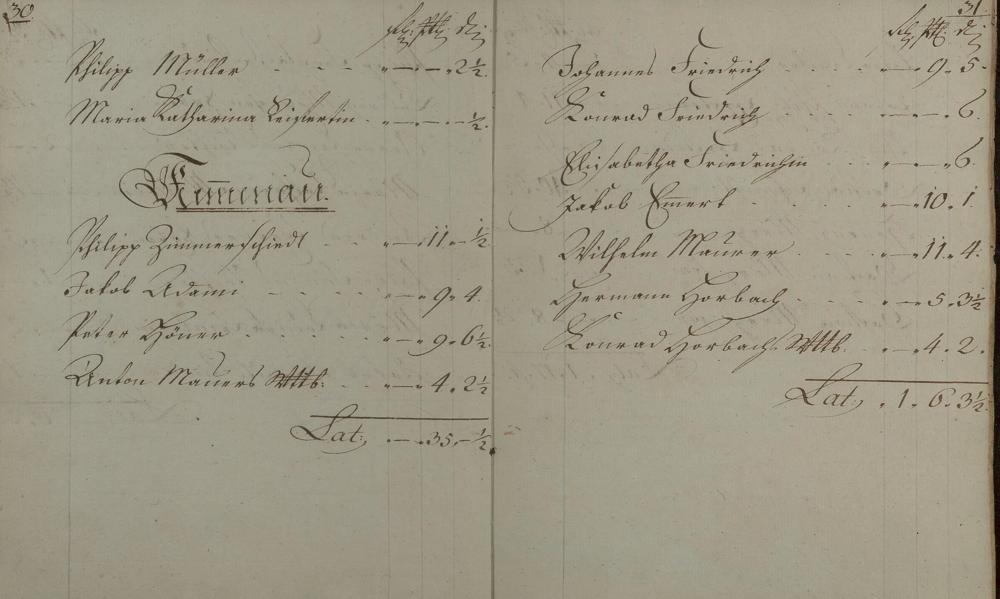 30
Philipp Müller . . . . " — " — " 2 ½.
Maria Katharina Leifertin . " — " — " — ½.
Wimmenau.
Philipp Zimmerschiedt . . " — " 11 " — ½
Jakob Adami . . . . . " — " 9 " 4.
Peter Höner . . . . . " — " 9 " 6 ½.
Anton Mauers Wttb: . . " — " 4 " 2 ½
Lat: " — " 35 " — ½
31.
Johannes Friedrich . . . . " — " 9 " 5.
Konrad Friedrich . . . . " — " — " 6.
Elisabetha Friedrichin . . . " — " — " 6.
Jakob Emert . . . . . " — " 10 " 1.
Wilhelm Maurer . . . . " — " 11 " 4.
Hermann Horbach . . . . " — " 5 " 3 ½
Konrad Horbachs Wttb. . " — " 4 " 2.
Lat: " 1 " 6 " 3 ½.